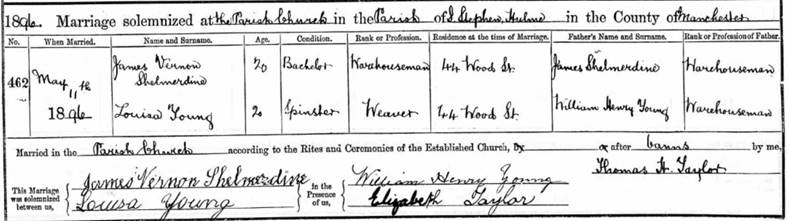 1896. Marriage solemnized at the Parish Church in the Parish of S. Stephen, Hulme in the County of Manchester
No. When Married. Name and Surname. Age. Condition. Rank or Profession. Residence at the time of Marriage. Father's Name and Surname. Rank or Profession of Father.
462 May 11th 1896 James Vernon Shelmerdine 20 Bachelor Warehouseman 44 Wood St. James Shelmerdine Warehouseman
Louisa Young 20 Spinster Weaver 44 Wood St. William Henry Young Warehouseman
Married in the Parish Church according to the Rites and Ceremonies of the Established Church, by or after banns by me,
Thomas H. Taylor
This Marriage was solemnized between us, James Vernon Shelmerdine Louisa Young in the Presence of us, William Henry Young Elizabeth Taylor